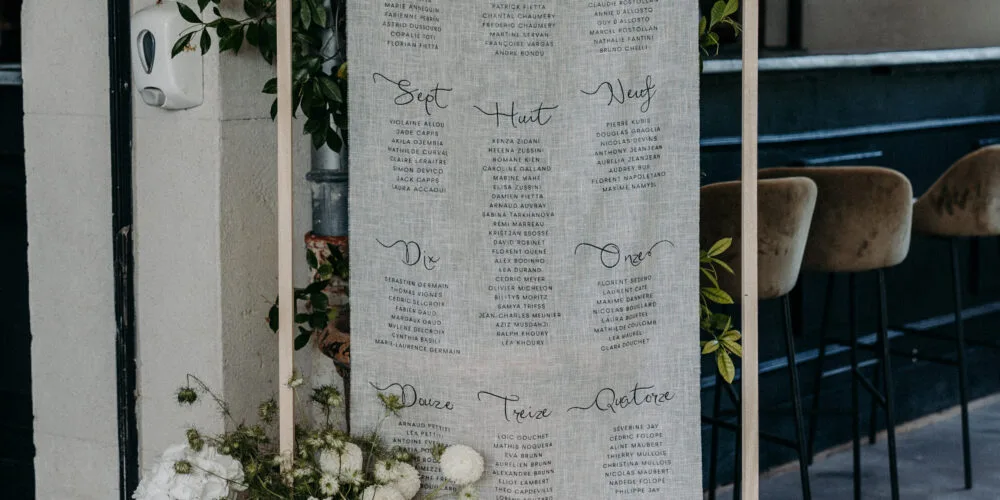 MARIE ANNEQUIN
FABIENNE PERRIN
ASTRID DUSSOURD
CORALIE TOTI
FLORIAN FIETTA
PATRICK FIETTA
CHANTAL CHAUMERY
FREDERIC CHAUMERY
MARTINE SERVAN
FRANÇOISE VARGAS
ANDRE BONDU
CLAUDE ROSTOLLAN
ANNIE D'ALLOSTO
GUY D'ALLOSTO
MARCEL ROSTOLLAN
NATHALIE FANTINI
BRUNO CHELLI
Sept
VIOLAINE ALLOU
JADE CAPPS
AKILA DJEMBIA
MATHILDE CURVAL
CLAIRE LERAITRE
SIMON DEVICO
JACK CAPPS
LAURA ACCAOUI
Huit
KENZA ZIDANI
HELENA ZUSSINI
ROMANE KIEN
CAROLINE GALLAND
MARINE MAHE
ELISA ZUSSINI
DAMIEN FIETTA
ARNAUD AUVRAY
SABINA TARKHANOVA
RÉMI MARREAU
KRISTZAN BSOSSE
DAVID ROBINET
FLORENT GUENE
ALEX BODINHO
LEA DURAND
CEDRIC MEYER
OLIVIER MICHELON
BILITYS MORITZ
SAMYA TRIFS
JEAN-CHARLES MEUNIER
AZIZ MUSDAHJI
RALPH KHOURY
LÉA KHOURY
Neuf
PIERRE KUBIS
DOUGLAS GRAGLIA
NICOLAS DEVINS
ANTHONY JEANJEAN
AURELIA JEANJEAN
AUDREY BUX
FLORENT NAPOLETANO
MAXIME NAMYSL
Dix
SEBASTIEN GERMAIN
THOMAS VIGNES
CEDRIC DELCROIX
FABIEN GAUD
MARGAUX GAUD
MYLENE DELCROIX
CYNTHIA BASILI
MARIE-LAURENCE GERMAIN
Onze
FLORENT SEBERO
LAURENT CATE
MAXIME DARNIERE
NICOLAS BOUILLARD
LAURA BOUETEL
MATHILDE COULOMB
LEA MAUREL
CLARA DOUCHEZ
Douze
ARNAUD PETTI
LEA PETTI
ANTOINE
Treize
LOIC GOUCHET
MATHIS NOQUERA
EVAN BRUNN
AURELIEN BRUNN
ALEXANDRE BRUNN
ELIOT LAMBERT
THEO CAPDEVILLE
Quatorze
SÉVERINE JAY
CEDRIC FOLOPE
ALINE MAUBERT
THIERRY MULLOIS
CHRISTINA MULLOIS
NICOLAS MAUBERT
NADEGE FOLOPE
PHILIPPE JAY